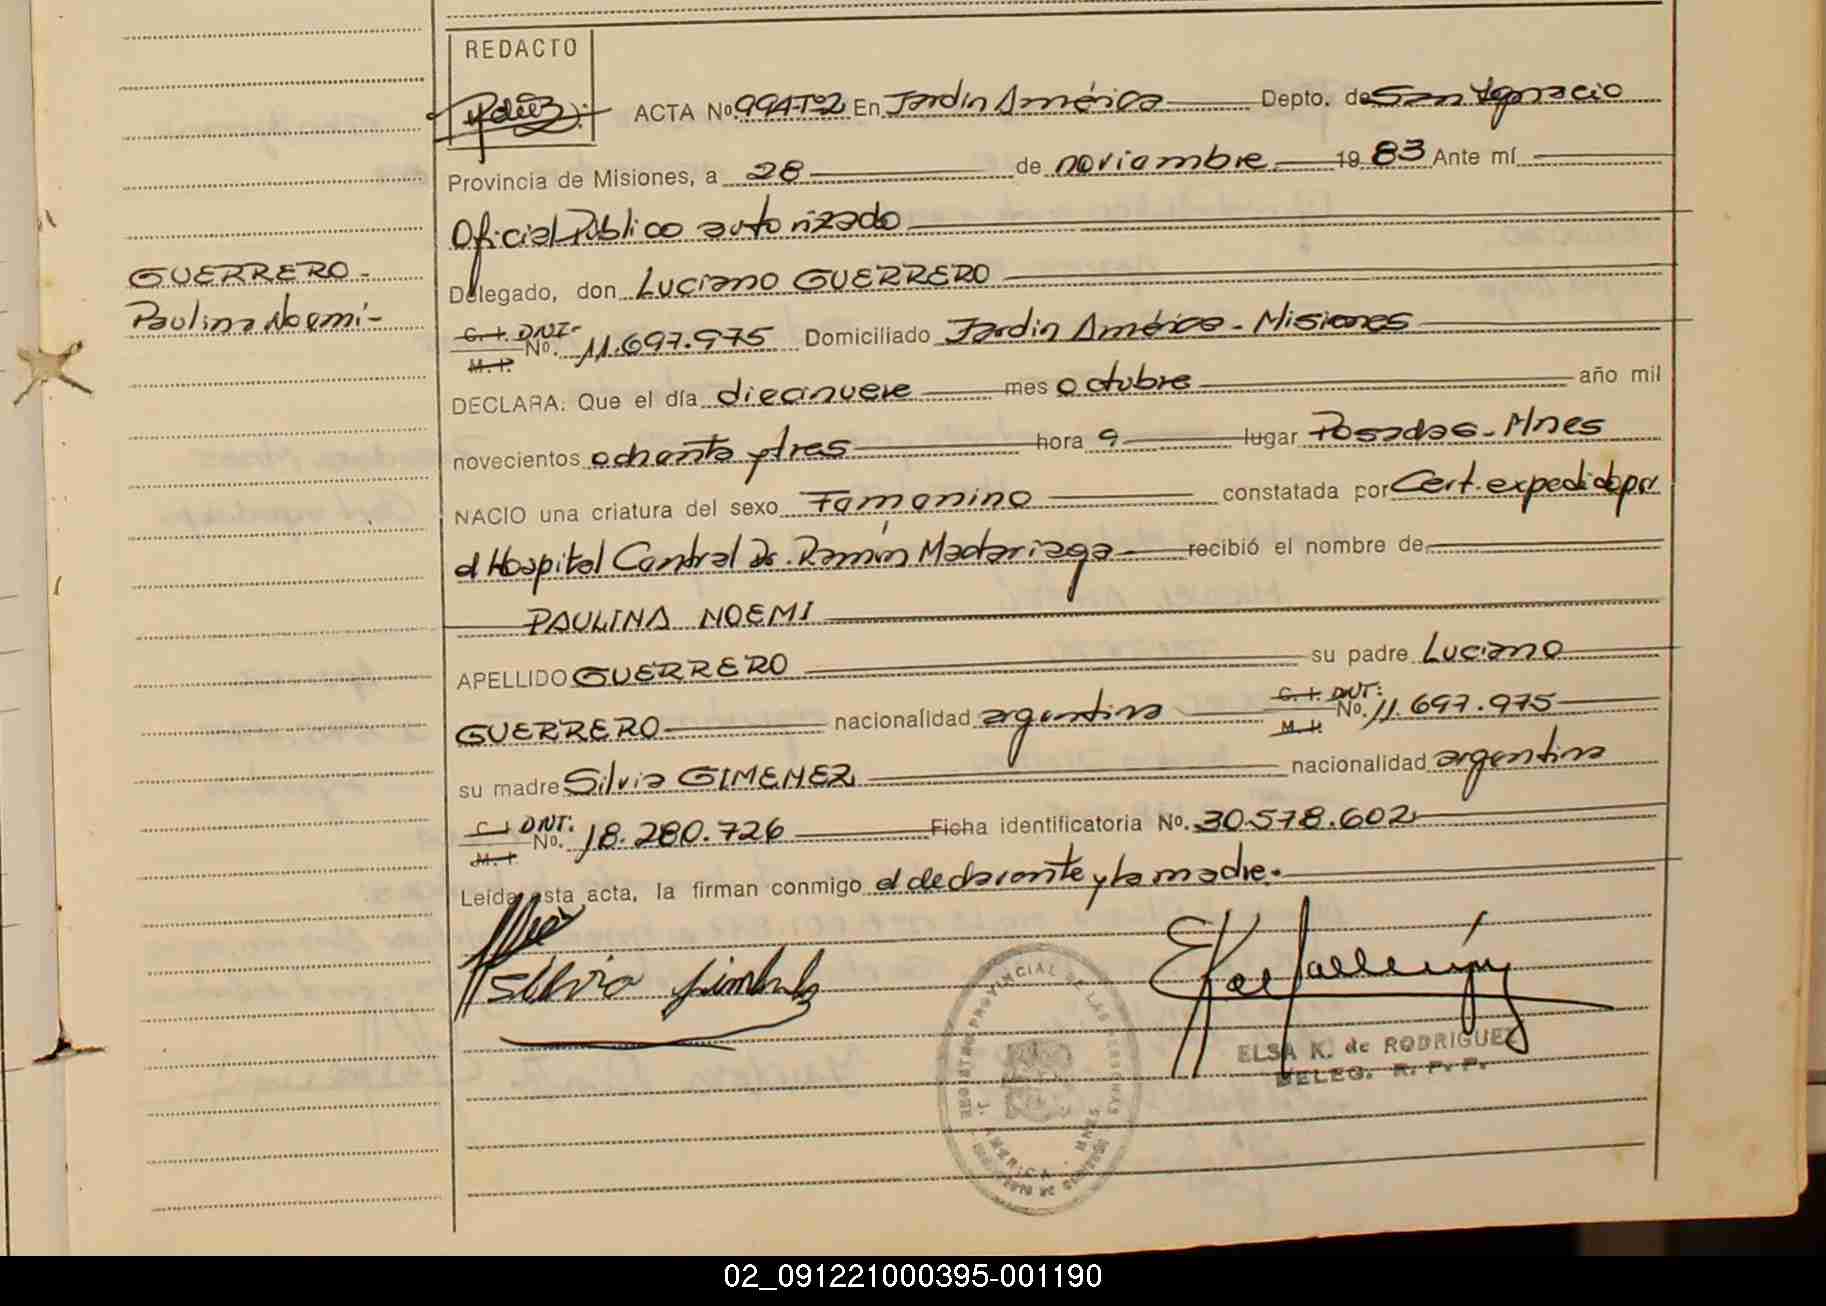 REDACTO
ACTA No. 994-Tº2 En Jardín América Depto. de San Ignacio
Provincia de Misiones, a 28 de noviembre 19 83 Ante mí
Oficial Público autorizado
GUERRERO-
Delegado, don Luciano GUERRERO
Paulina Noemí-
C. I. DNI- M. I. No. 11.697.975 Domiciliado Jardín América - Misiones
DECLARA: Que el día diecinueve mes octubre año mil
novecientos ochenta y tres hora 9 lugar Posadas - Mnes
NACIO una criatura del sexo Femenino constatada por Cert. expedido por
el Hospital Central Dr. Ramón Madariaga recibió el nombre de
PAULINA NOEMI
APELLIDO GUERRERO su padre Luciano
GUERRERO nacionalidad argentina C. I. DNI: M. I. No. 11.697.975
su madre Silvia GIMENEZ nacionalidad argentina
C. I. DNI: M. I. No. 18.280.726 Ficha identificatoria No. 30.578.602
Leída esta acta, la firman conmigo el declarante y la madre.
Silvia
REGISTRO PROVINCIAL DE LAS PERSONAS
J. AMERICA - MNES
ELSA K. de RODRIGUEZ
DELEG. R. P. P.
02_091221000395-001190